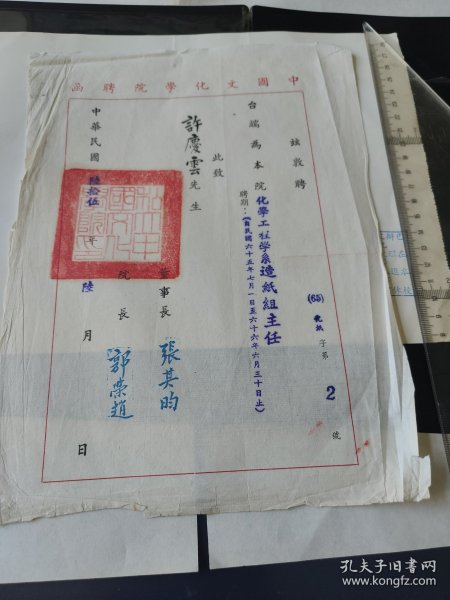 中國文化學院聘函
(65) 字第2號
茲敦聘
台端為本院化學工程學系造紙組主任
聘期：(自民國六十五年七月一日至六十六年六月三十日止)
此致
許慶雲先生
董事長 張其昀
院長 郭榮趙
中華民國陸拾伍年陸月日
孔夫子旧书网
www.kongfz.com